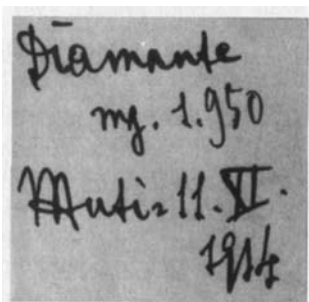 Diamante
mg. 1.950
Muti= 11. VI.
1914